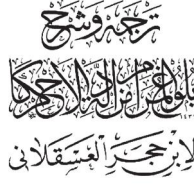 ترجمة وشرح
بلوغ المرام من أدلة الأحكام
لابن حجر العسقلاني